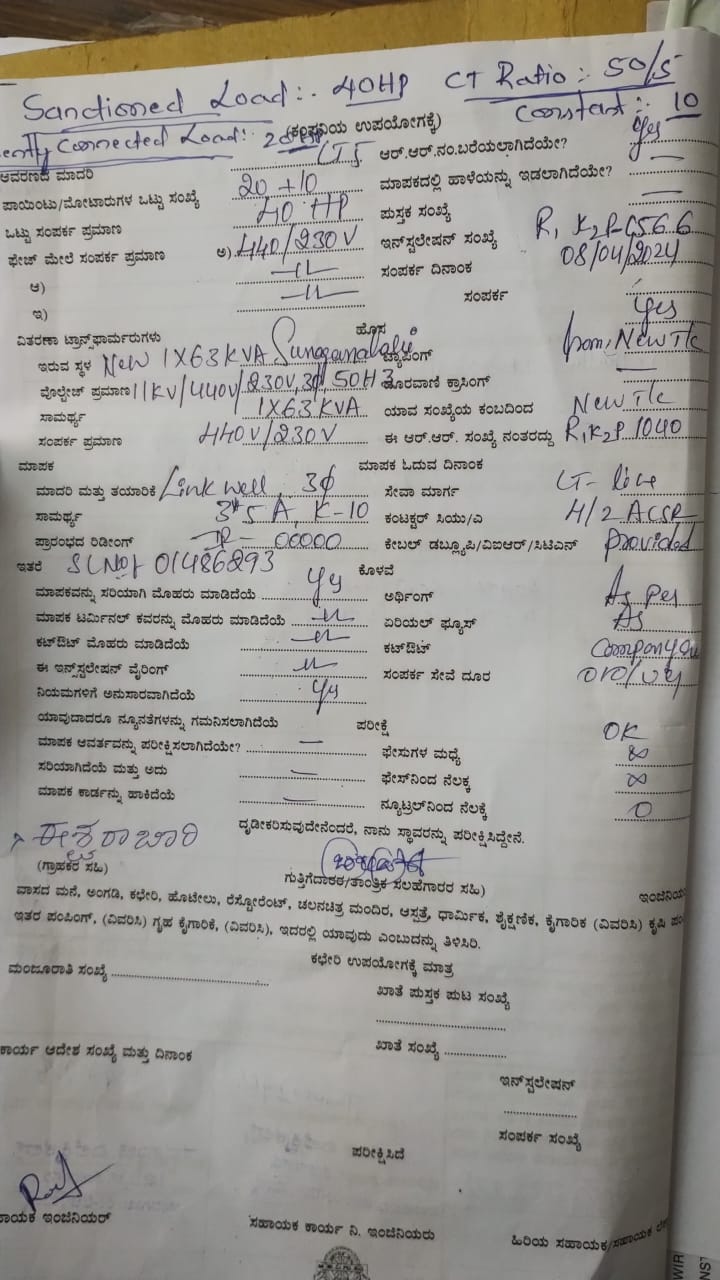 Sanctioned Load:- 40HP CT Ratio:- 50/5
Constant:- 10
Connected Load:- (ಕಂಪನಿಯ ಉಪಯೋಗಕ್ಕೆ)
ಆವರಣದ ಮಾದರಿ LT5 ಆರ್.ಆರ್.ನಂ.ಬರೆಯಲಾಗಿದೆಯೇ? Yes
ಪಾಯಿಂಟು/ಮೋಟಾರುಗಳ ಒಟ್ಟು ಸಂಖ್ಯೆ 20+10 ಮಾಪಕದಲ್ಲಿ ಹಾಳೆಯನ್ನು ಇಡಲಾಗಿದೆಯೇ? —
ಒಟ್ಟು ಸಂಪರ್ಕ ಪ್ರಮಾಣ 40 HP ಪುಸ್ತಕ ಸಂಖ್ಯೆ —
ಫೇಜ್ ಮೇಲೆ ಸಂಪರ್ಕ ಪ್ರಮಾಣ ಅ) 440/230V ಇನ್‌ಸ್ಟಲೇಷನ್ ಸಂಖ್ಯೆ
ಆ) —ıı— ಸಂಪರ್ಕ ದಿನಾಂಕ 08/04/2024
ಇ) —ıı— ಸಂಪರ್ಕ
ವಿತರಣಾ ಟ್ರಾನ್ಸ್‌ಫಾರ್ಮರುಗಳು ಹೊಸ Yes
ಇರುವ ಸ್ಥಳ New 1X63KVA ಟ್ಯಾಪಿಂಗ್ from, New T/c
ವೋಲ್ಟೇಜ್ ಪ್ರಮಾಣ 11KV/440V/230V, 3φ, 50HZ ದೂರವಾಣಿ ಕ್ರಾಸಿಂಗ್ —
ಸಾಮರ್ಥ್ಯ 1X63KVA ಯಾವ ಸಂಖ್ಯೆಯ ಕಂಬದಿಂದ New T/c
ಸಂಪರ್ಕ ಪ್ರಮಾಣ 440V/230V ಈ ಆರ್.ಆರ್. ಸಂಖ್ಯೆ ನಂತರದ್ದು R1K2P 1040
ಮಾಪಕ ಮಾಪಕ ಓದುವ ದಿನಾಂಕ
ಮಾದರಿ ಮತ್ತು ತಯಾರಿಕೆ Linkwell, 3φ ಸೇವಾ ಮಾರ್ಗ LT-line
ಸಾಮರ್ಥ್ಯ 5A, K-10 ಕಂಟಕ್ಟರ್ ಸಿಯು/ಎ 4/2 ACSR
ಪ್ರಾರಂಭದ ರಿಡೀಂಗ್ IR- 00000 ಕೇಬಲ್ ಡಬ್ಲ್ಯೂಪಿ/ವಿಐಆರ್/ಸಿಟಿಎನ್ provided
ಇತರೆ SLNo: 01486293 ಕೊಳವೆ
ಮಾಪಕವನ್ನು ಸರಿಯಾಗಿ ಮೊಹರು ಮಾಡಿದೆಯೆ Yes ಅರ್ಥಿಂಗ್ As per
ಮಾಪಕ ಟರ್ಮಿನಲ್ ಕವರನ್ನು ಮೊಹರು ಮಾಡಿದೆಯೆ —ıı— ಏರಿಯಲ್ ಫ್ಯೂಸ್ As
ಕಟ್‌ಔಟ್ ಮೊಹರು ಮಾಡಿದೆಯೆ —ıı— ಕಟ್‌ಔಟ್ Company
ಈ ಇನ್‌ಸ್ಟಲೇಷನ್ ವೈರಿಂಗ್ —ıı— ಸಂಪರ್ಕ ಸೇವೆ ದೂರ
ನಿಯಮಗಳಿಗೆ ಅನುಸಾರವಾಗಿದೆಯೆ Yes
ಯಾವುದಾದರೂ ನ್ಯೂನತೆಗಳನ್ನು ಗಮನಿಸಲಾಗಿದೆಯೆ ಪರೀಕ್ಷೆ OK
ಮಾಪಕ ಆವರ್ತವನ್ನು ಪರೀಕ್ಷಿಸಲಾಗಿದೆಯೇ? — ಫೇಸುಗಳ ಮಧ್ಯೆ ∞
ಸರಿಯಾಗಿದೆಯೆ ಮತ್ತು ಅದು — ಫೇಸ್‌ನಿಂದ ನೆಲಕ್ಕೆ ∞
ಮಾಪಕ ಕಾರ್ಡನ್ನು ಹಾಕಿದೆಯೆ — ನ್ಯೂಟ್ರಲ್‌ನಿಂದ ನೆಲಕ್ಕೆ 0
ದೃಢೀಕರಿಸುವುದೇನೆಂದರೆ, ನಾನು ಸ್ಥಾವರನ್ನು ಪರೀಕ್ಷಿಸಿದ್ದೇನೆ.
ಈಶ್ವರಾಚಾರಿ
(ಗ್ರಾಹಕರ ಸಹಿ) ಗುತ್ತಿಗೆದಾರರ/ತಾಂತ್ರಿಕ ಸಲಹೆಗಾರರ ಸಹಿ) ಇಂಜಿನಿಯ
ವಾಸದ ಮನೆ, ಅಂಗಡಿ, ಕಛೇರಿ, ಹೊಟೇಲು, ರೆಸ್ಟೋರೆಂಟ್, ಚಲನಚಿತ್ರ ಮಂದಿರ, ಆಸ್ಪತ್ರೆ, ಧಾರ್ಮಿಕ, ಶೈಕ್ಷಣಿಕ, ಕೈಗಾರಿಕ (ವಿವರಿಸಿ) ಕೃಷಿ ಪಂ
ಇತರ ಪಂಪಿಂಗ್, (ವಿವರಿಸಿ) ಗೃಹ ಕೈಗಾರಿಕೆ, (ವಿವರಿಸಿ), ಇದರಲ್ಲಿ ಯಾವುದು ಎಂಬುದನ್ನು ತಿಳಿಸಿರಿ.
ಕಛೇರಿ ಉಪಯೋಗಕ್ಕೆ ಮಾತ್ರ
ಮಂಜೂರಾತಿ ಸಂಖ್ಯೆ ಖಾತೆ ಪುಸ್ತಕ ಪುಟ ಸಂಖ್ಯೆ
ಕಾರ್ಯ ಆದೇಶ ಸಂಖ್ಯೆ ಮತ್ತು ದಿನಾಂಕ ಖಾತೆ ಸಂಖ್ಯೆ
ಇನ್‌ಸ್ಟಲೇಷನ್
ಸಂಪರ್ಕ ಸಂಖ್ಯೆ
ಪರೀಕ್ಷಿಸಿದೆ
ಾಯಕ ಇಂಜಿನಿಯರ್ ಸಹಾಯಕ ಕಾರ್ಯ ನಿ. ಇಂಜಿನಿಯರು ಹಿರಿಯ ಸಹಾಯಕ/ಸಹಾಯಕ